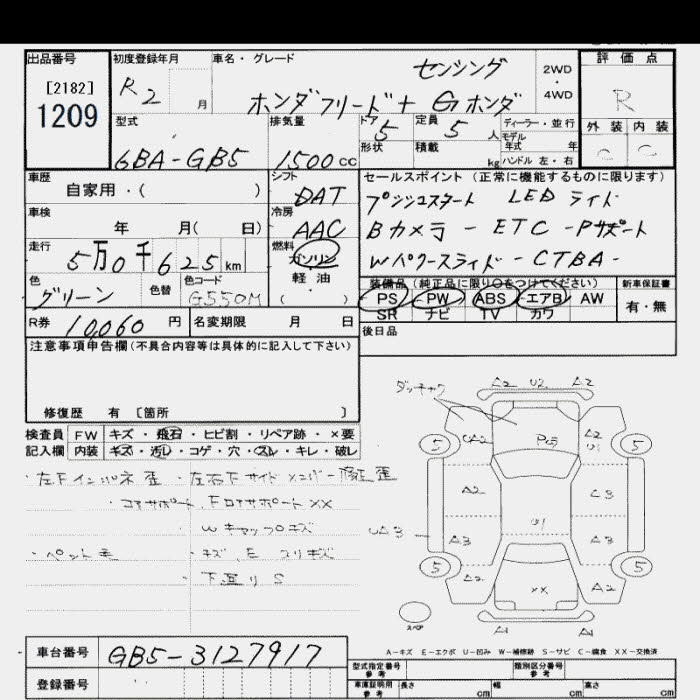 出品番号 初度登録年月 車名・グレード 評価点
[2182] R2 月 センシング 2WD・4WD R
1209 ホンダフリード+ Gホンダ
外装 内装
C C
型式 排気量 ドア 定員 ディーラー・並行
6BA-GB5 1500cc 5 5人 モデル年式 年
形状 積載 kg ハンドル 左・右
車歴 シフト セールスポイント(正常に機能するものに限ります)
自家用・( ) DAT プッシュスタート LEDライト
車検 冷房 Bカメラ - ETC - Pサポート
年 月( 日) AAC Wパワースライド - CTBA -
走行 燃料
5万0千625km ガソリン
色 色替 色コード 軽・油
グリーン G550M ( )
装備品(純正品に限り○をつけてください) 新車保証書
PS PW ABS エアB AW 有・無
SR ナビ TV カワ
R券 10,060円 名変期限 月 日
後日品
注意事項申告欄(不具合内容等は具体的に記入して下さい)
修復歴 有 [箇所 ]
検査員 FW キズ・飛石・ヒビ割・リペア跡・×要
記入欄 内装 キズ・汚レ・コゲ・穴・スレ・キレ・破レ
・左Fインパネ歪 ・左右Fサイドメンバー修正歪
・コアサポート、Fロアサポート XX
・Wキャップキズ
・キズ、E スリキズ
・下廻り S
A2 U2 A2
5 5
A2
A2 A3
U1
UA3 A3 A3
5 5
A2 XX A2
スペア A1 A1
A-キズ E-エクボ U-凹み W-補修跡 S-サビ C-腐食 XX-交換済
車台番号 GB5-3127917
登録番号
型式指定番号 参考 類別区分番号 参考
車庫証明用 参考 長さ cm 幅 cm 高さ cm